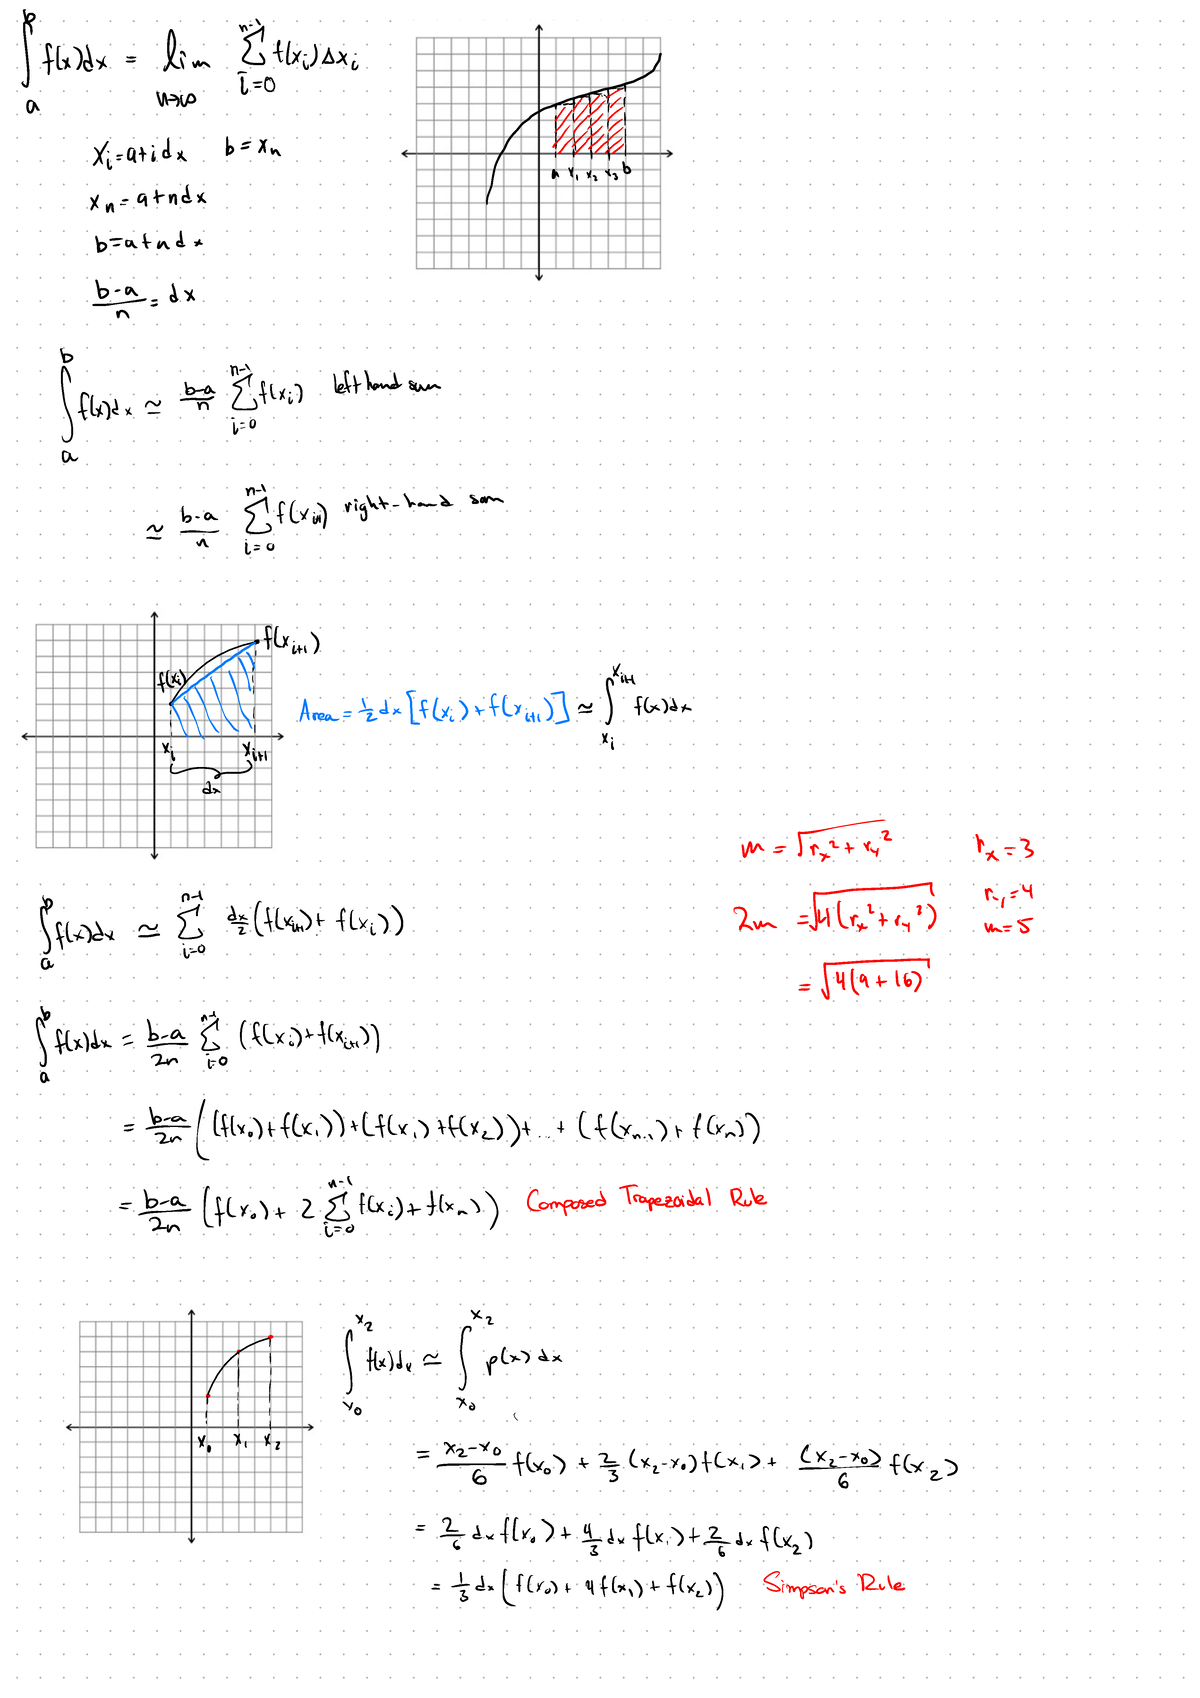 ∫_a^b f(x)dx = lim_{n→∞} Σ_{i=0}^{n-1} f(x_i)Δx_i
x_i = a+i dx   b = x_n
x_n = a+ndx
b = a+ndx
(b-a)/n = dx
a x_1 x_2 x_3 b
∫_a^b f(x)dx ≃ (b-a)/n Σ_{i=0}^{n-1} f(x_i) left hand sum
≃ (b-a)/n Σ_{i=0}^{n-1} f(x_{i+1}) right-hand sum
f(x_{i+1})
f(x_i)
x_i x_{i+1}
dx
Area = 1/2 dx [f(x_i)+f(x_{i+1})] ≃ ∫_{x_i}^{x_{i+1}} f(x)dx
m = √(r_x² + r_y²)   r_x = 3
r_y = 4
2m = √(4(r_x² + r_y²))   m = 5
= √(4(9+16))
∫_a^b f(x)dx ≃ Σ_{i=0}^{n-1} dx/2 (f(x_{i+1})+f(x_i))
∫_a^b f(x)dx = (b-a)/2n Σ_{i=0}^{n-1} (f(x_i)+f(x_{i+1}))
= (b-a)/2n ((f(x_0)+f(x_1))+(f(x_1)+f(x_2))+...+(f(x_{n-1})+f(x_n))
= (b-a)/2n (f(x_0)+2 Σ_{i=0}^{n-1} f(x_i)+f(x_n)) Composed Trapezoidal Rule
x_0 x_1 x_2
∫_{x_0}^{x_2} f(x)dx ≃ ∫_{x_0}^{x_2} p(x)dx
= (x_2-x_0)/6 f(x_0) + 2/3 (x_2-x_0)f(x_1) + (x_2-x_0)/6 f(x_2)
= 2/6 dx f(x_0) + 4/3 dx f(x_1) + 2/6 dx f(x_2)
= 1/3 dx (f(x_0) + 4f(x_1) + f(x_2)) Simpson's Rule